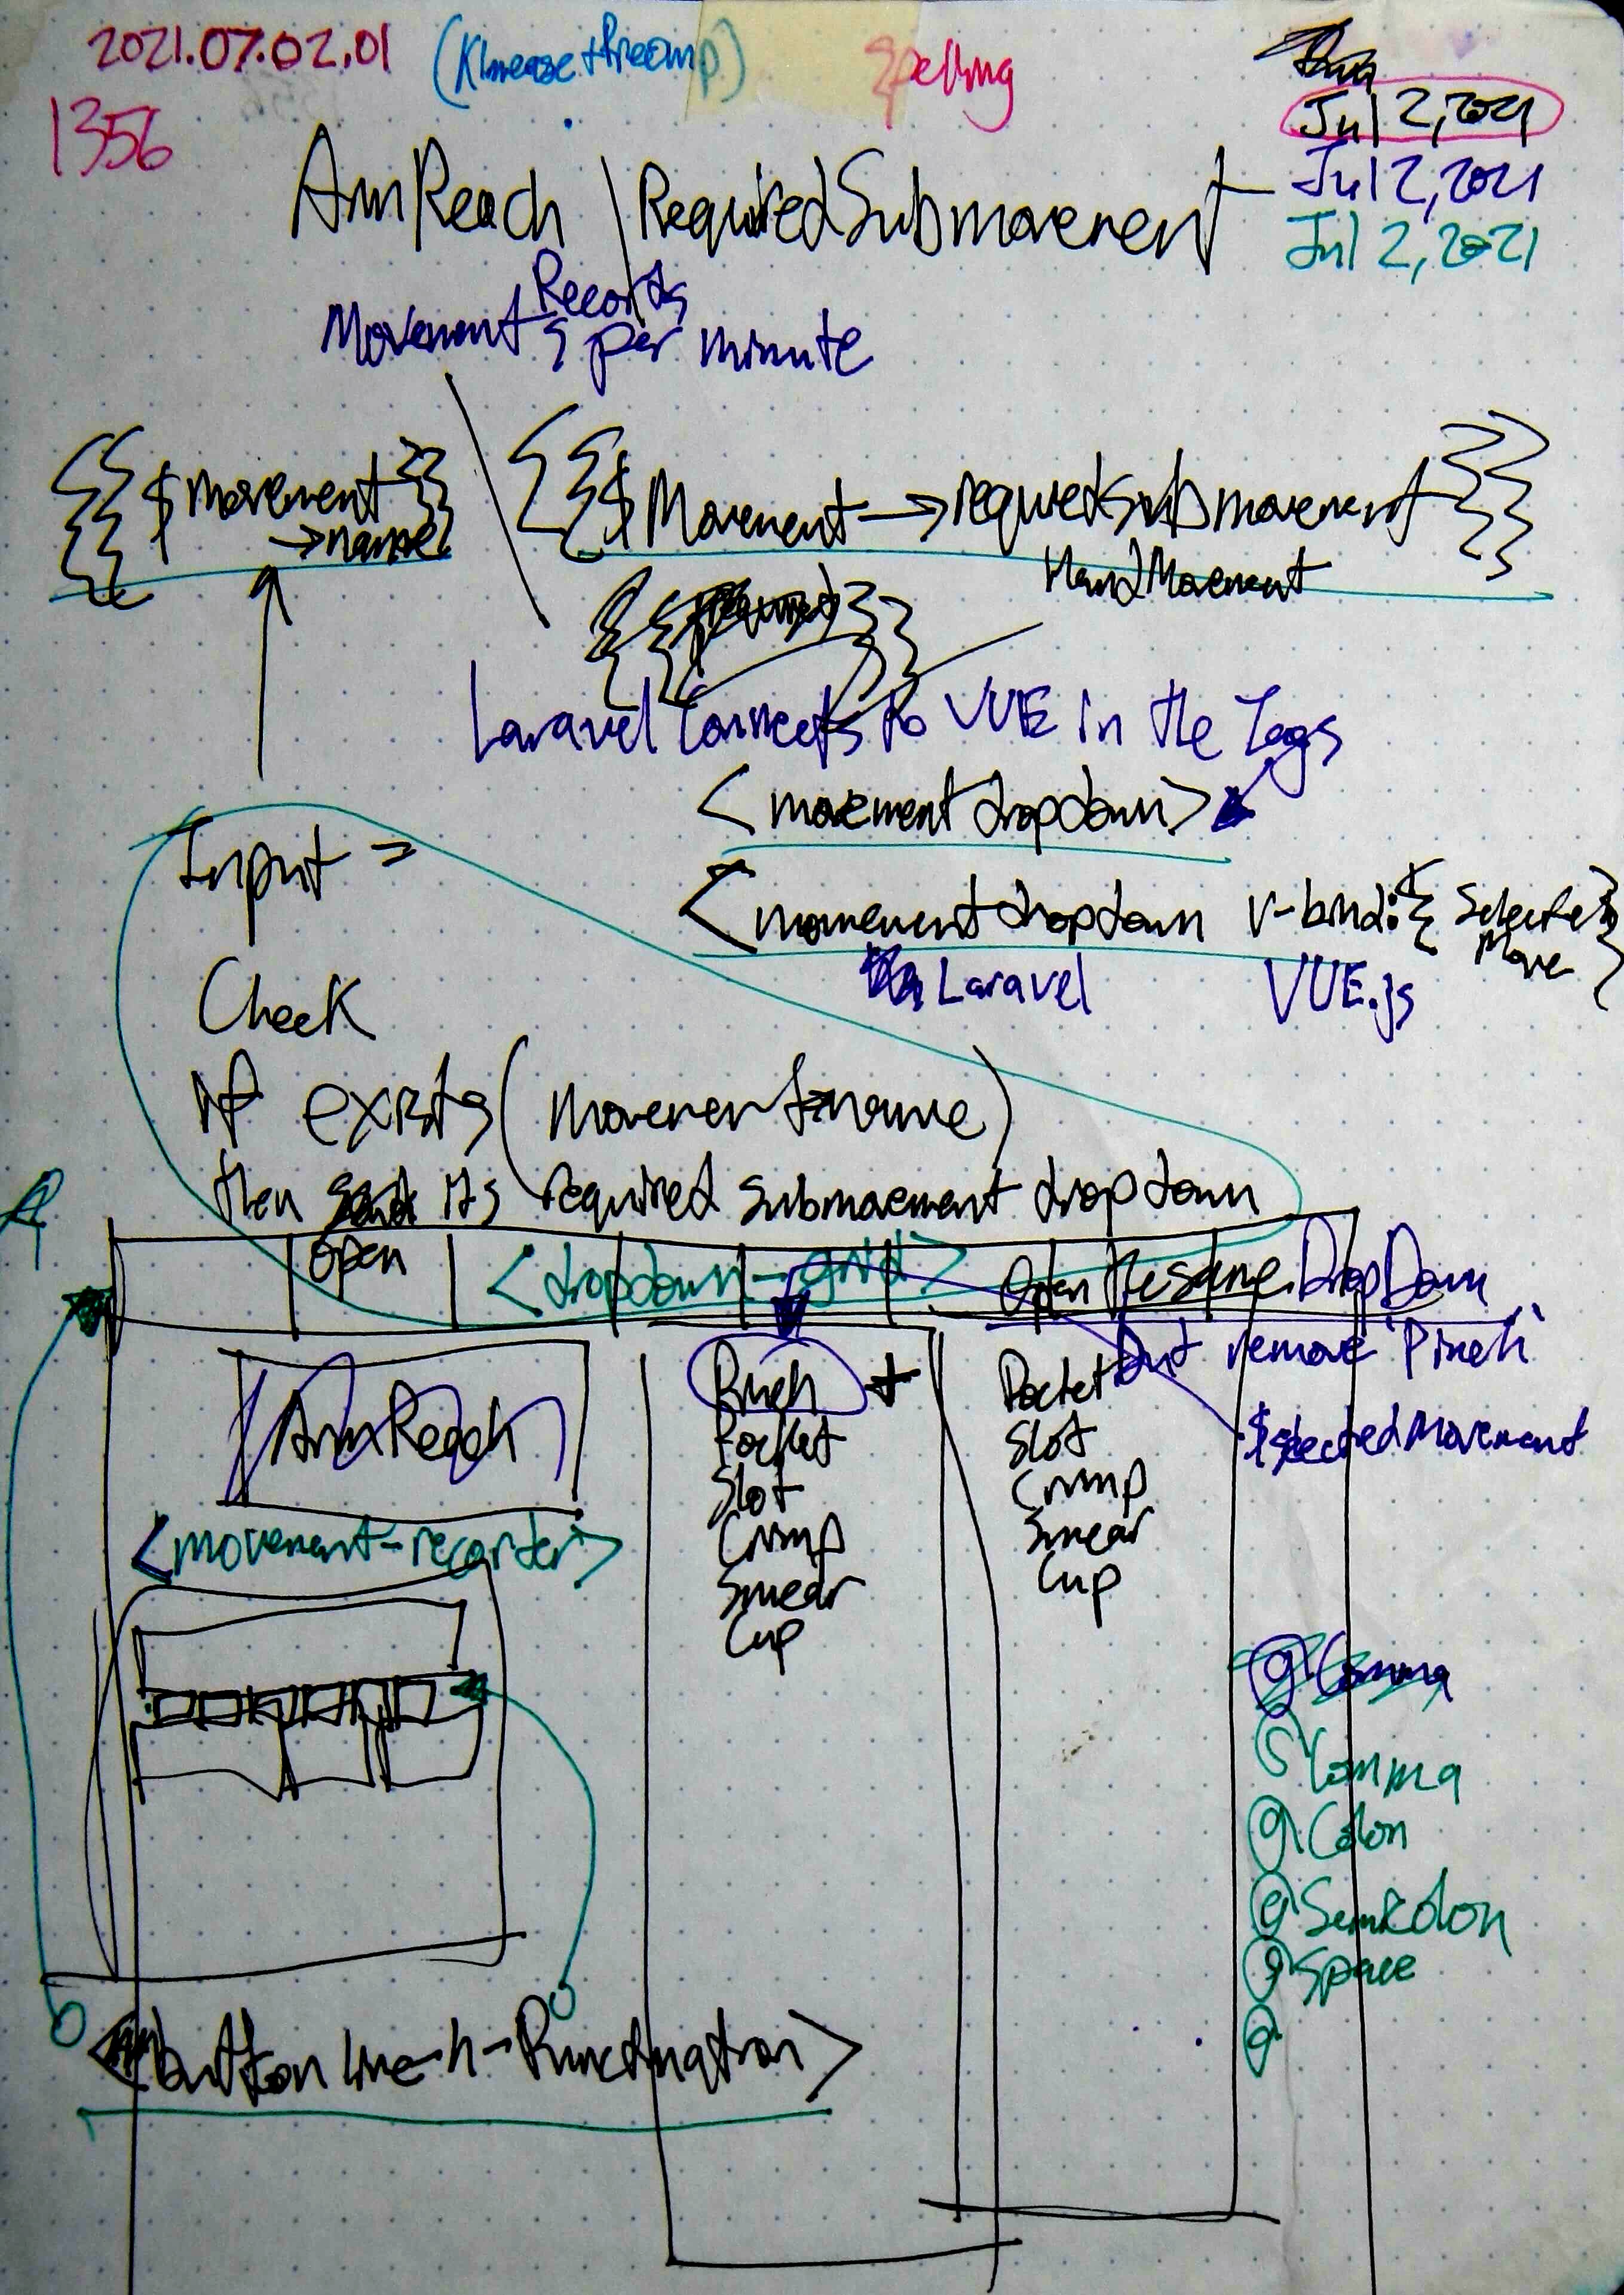 2021.07.02.01
Spelling
Jul 2, 2021
Jul 2, 2021
Jul 2, 2021
1356
ArmReach \ RequiredSubmovement
Movement Records
per minute
{{ $movement
→name }}
{{ $Movement → requiredsubmovement }}
HandMovement
Laravel Connects to VUE in the Tags
<movementdropdown>
Input =
<movementdropdown v-bind:{{ Selected
Move }}
Laravel VUE.js
Check
if exists (movement→name)
then its required submovement dropdown
open
<dropdown-grid>
Open the same DropDown
but remove 'Pinch'
ArmReach
Pinch +
Pocket
Slot
Crimp
Smear
Cup
Pocket
Slot
Crimp
Smear
Cup
$selectedMovement
<movement-recorder>
Comma
Comma
Colon
Semicolon
Space
<button line-h-Punctuation>